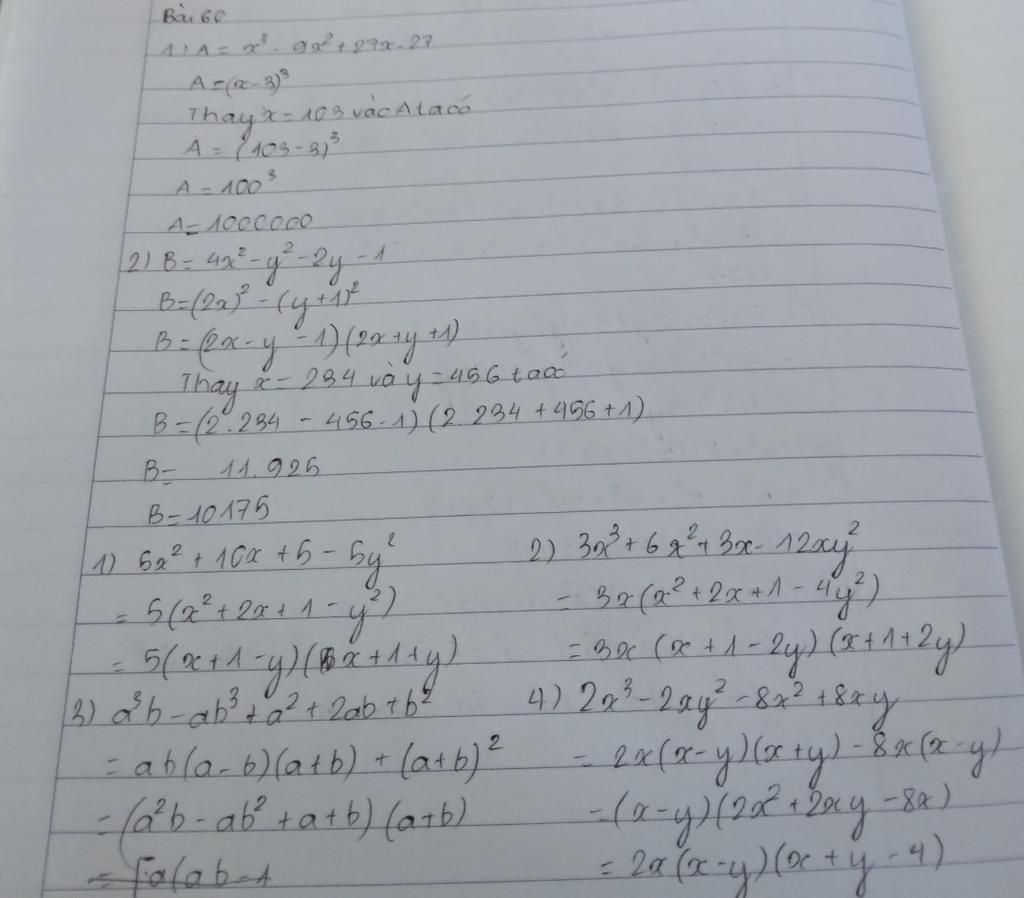 Bài 60
1) A = x³ - 9x² + 27x - 27
A = (x - 3)³
Thay x = 103 vào A ta có
A = (103 - 3)³
A = 100³
A = 1000000
2) B = 4x² - y² - 2y - 1
B = (2x)² - (y + 1)²
B = (2x - y - 1)(2x + y + 1)
Thay x = 234 và y = 456 ta có
B = (2.234 - 456 - 1)(2.234 + 456 + 1)
B = 11.925
B = 10175
1) 5x² + 10x + 5 - 5y²
= 5(x² + 2x + 1 - y²)
= 5(x + 1 - y)(x + 1 + y)
2) 3x³ + 6x² + 3x - 12xy²
= 3x(x² + 2x + 1 - 4y²)
= 3x(x + 1 - 2y)(x + 1 + 2y)
3) a³b - ab³ + a² + 2ab + b²
= ab(a - b)(a + b) + (a + b)²
= (a²b - ab² + a + b)(a + b)
= [a(ab - 1
4) 2x³ - 2xy² - 8x² + 8xy
= 2x(x - y)(x + y) - 8x(x - y)
= (x - y)(2x² + 2xy - 8x)
= 2x(x - y)(x + y - 4)